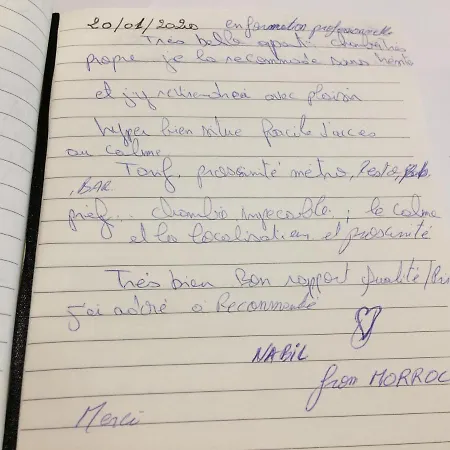 20/01/2020 en formation professionnelle
Très belle apart. chambre très
propre je la recommande sans
et j'y retournerai avec plaisir
hyper bien situé facile d'acces
au calme
Tarif, proximité métro, Resto, Pub
, BAR
préf... chambre impecable, le calme
et la localisation et proximité
Très bien Bon rapport Qualité/Pri
J'ai adoré a Recommandé
NABIL
from MORROC
Merci